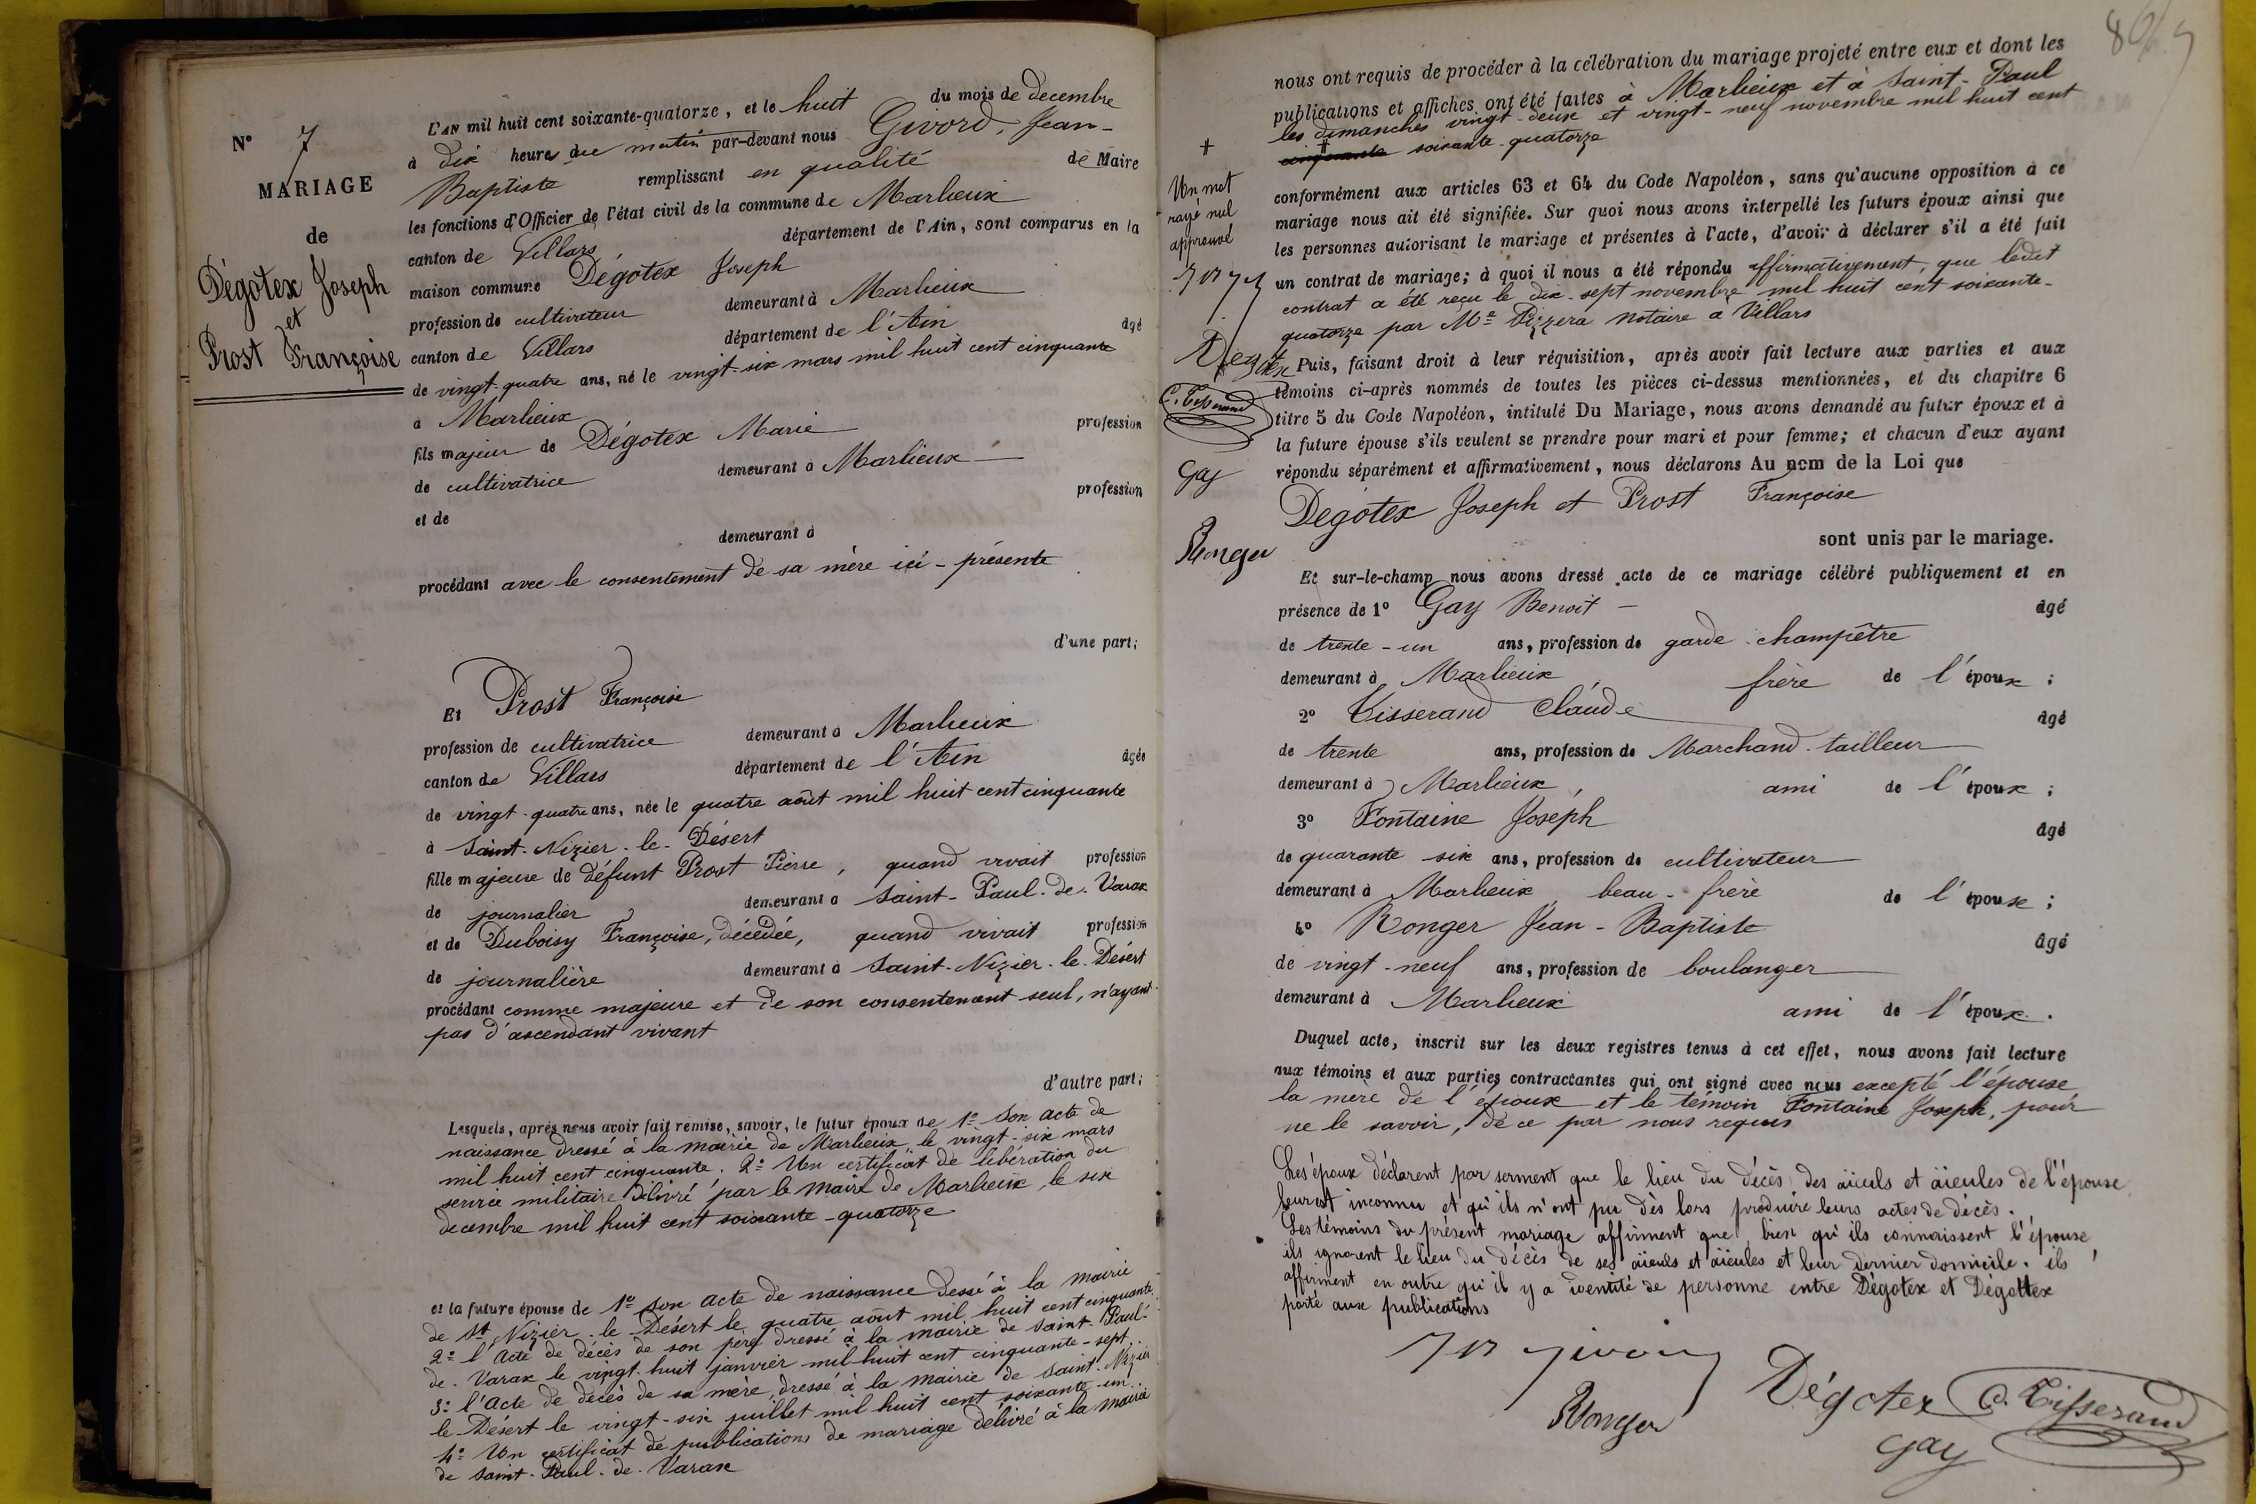 N° 7
MARIAGE
de
Dégotex Joseph
et
Prost Françoise
L'AN mil huit cent soixante-quatorze, et le huit du mois de decembre
à dix heures du matin par-devant nous Givord, Jean-
Baptiste remplissant en qualité de Maire
les fonctions d'Officier de l'état civil de la commune de Marlieux
canton de Villars département de l'Ain, sont comparus en la
maison commune Dégotex Joseph
profession de cultivateur demeurant à Marlieux
canton de Villars département de l'Ain âgé
de vingt-quatre ans, né le vingt-six mars mil huit cent cinquante
à Marlieux
fils majeur de Dégotex Marie profession
de cultivatrice demeurant à Marlieux
et de profession
demeurant à
procédant avec le consentement de sa mère ici-présente
d'une part;
Et Prost Françoise
profession de cultivatrice demeurant à Marlieux
canton de Villars département de l'Ain âgée
de vingt-quatre ans, née le quatre août mil huit cent cinquante
à Saint-Nizier-le-Désert
fille majeure de défunt Prost Pierre, quand vivait profession
de journalier demeurant à Saint-Paul-de-Varax
et de Duboisy Françoise, décédée, quand vivait profession
de journalière demeurant à Saint-Nizier-le-Désert
procédant comme majeure et de son consentement seul, n'ayant
pas d'ascendant vivant
d'autre part;
Lesquels, après nous avoir fait remise, savoir, le futur époux de 1° Son acte de
naissance dressé à la mairie de Marlieux le vingt-six mars
mil huit cent cinquante. 2° Un certificat de libération du
service militaire délivré par le Maire de Marlieux, le six
decembre mil huit cent soixante-quatorze
et la future épouse de 1° Son acte de naissance dressé à la mairie
de St Nizier-le-Désert le quatre août mil huit cent cinquante
2° l'Acte de décès de son père dressé à la mairie de Saint-Paul-
de-Varax le vingt-huit janvier mil huit cent cinquante-sept.
3° l'Acte de décès de sa mère, dressé à la mairie de Saint-Nizier
le Désert le vingt-six juillet mil huit cent soixante-un.
4° Un certificat de publications de mariage délivré à la mairie
de Saint-Paul-de-Varax
nous ont requis de procéder à la célébration du mariage projeté entre eux et dont les
publications et affiches ont été faites à Marlieux et à Saint-Paul
les dimanches vingt-deux et vingt-neuf novembre mil huit cent
cinquante # soixante-quatorze
#
Un mot
rayé nul
approuvé
Dégotex
C. Tisserand
Gay
Ronger
conformément aux articles 63 et 64 du Code Napoléon, sans qu'aucune opposition à ce
mariage nous ait été signifiée. Sur quoi nous avons interpellé les futurs époux ainsi que
les personnes autorisant le mariage et présentes à l'acte, d'avoir à déclarer s'il a été fait
un contrat de mariage; à quoi il nous a été répondu affirmativement, que ledit
contrat a été reçu le dix-sept novembre mil huit cent soixante-
quatorze par Me Pizzera notaire a Villars
Puis, faisant droit à leur réquisition, après avoir fait lecture aux parties et aux
témoins ci-après nommés de toutes les pièces ci-dessus mentionnées, et du chapitre 6
titre 5 du Code Napoléon, intitulé Du Mariage, nous avons demandé au futur époux et à
la future épouse s'ils veulent se prendre pour mari et pour femme; et chacun d'eux ayant
répondu séparément et affirmativement, nous déclarons Au nom de la Loi que
Dégotex Joseph et Prost Françoise
sont unis par le mariage.
Et sur-le-champ nous avons dressé acte de ce mariage célébré publiquement et en
présence de 1° Gay Benoit âgé
de trente-un ans, profession de garde-champêtre
demeurant à Marlieux, frère de l'époux;
2° Tisserand Claude âgé
de trente ans, profession de Marchand-tailleur
demeurant à Marlieux, ami de l'époux;
3° Fontaine Joseph âgé
de quarante six ans, profession de cultivateur
demeurant à Marlieux beau-frère de l'épouse;
4° Ronger Jean-Baptiste âgé
de vingt-neuf ans, profession de boulanger
demeurant à Marlieux ami de l'époux.
Duquel acte, inscrit sur les deux registres tenus à cet effet, nous avons fait lecture
aux témoins et aux parties contractantes qui ont signé avec nous excepté l'épouse
la mère de l'époux et le témoin Fontaine Joseph, pour
ne le savoir, de ce par nous requis
Les époux déclarent par serment que le lieu du décès des aïeuls et aïeules de l'épouse
leur est inconnu et qu'ils n'ont pu dès lors produire leurs actes de décès.
Les témoins du présent mariage affirment que, bien qu'ils connaissent l'épouse,
ils ignorent le lieu du décès de ses aïeuls et aïeules et leur dernier domicile. ils
affirment en outre qu'il y a identité de personne entre Dégotex et Dégottex
porté aux publications
Givord
Ronger Dégotex C. Tisserand
Gay